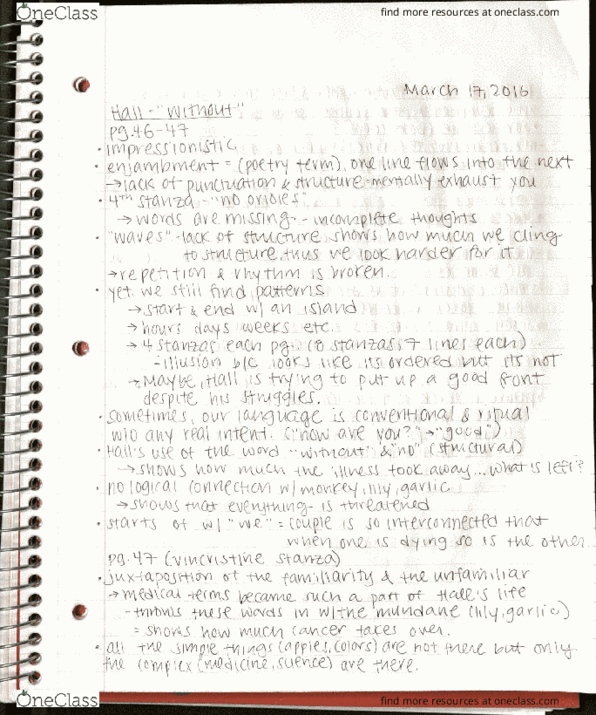 OneClass
find more resources at oneclass.com
March 17, 2016
Hall - "Without"
pg. 46-47
• impressionistic
• enjambment = (poetry term), one line flows into the next
→ lack of punctuation & structure mentally exhaust you
• 4th stanza - "no orioles"
→ words are missing - incomplete thoughts
• "waves" - lack of structure shows how much we cling
to structure, thus we look harder for it
→ repetition & rhythm is broken.
• yet we still find patterns
→ start & end w/ an island
→ hours days weeks etc.
→ 4 stanzas each pg. (8 stanzas; 7 lines each)
- illusion b/c looks like its ordered but its not
→ Maybe Hall is trying to put up a good font
despite his struggles.
• sometimes, our language is conventional & ritual
w/o any real intent. ("how are you?" → "good")
• Hall's use of the word "without" & "no" (structural)
→ shows how much the illness took away... what is left?
• no logical connection w/ monkey, lily, garlic
→ shows that everything is threatened
• starts of w/ "we" = couple is so interconnected that
when one is dying so is the other
pg. 47 (vincristine stanza)
• juxtaposition of the familiarity & the unfamiliar
→ medical terms became such a part of Hall's life
- throws these words in w/ the mundane (lily, garlic)
= shows how much cancer takes over.
• all the simple things (apples, colors) are not there but only
the complex (medicine, science) are there.
OneClass
find more resources at oneclass.com